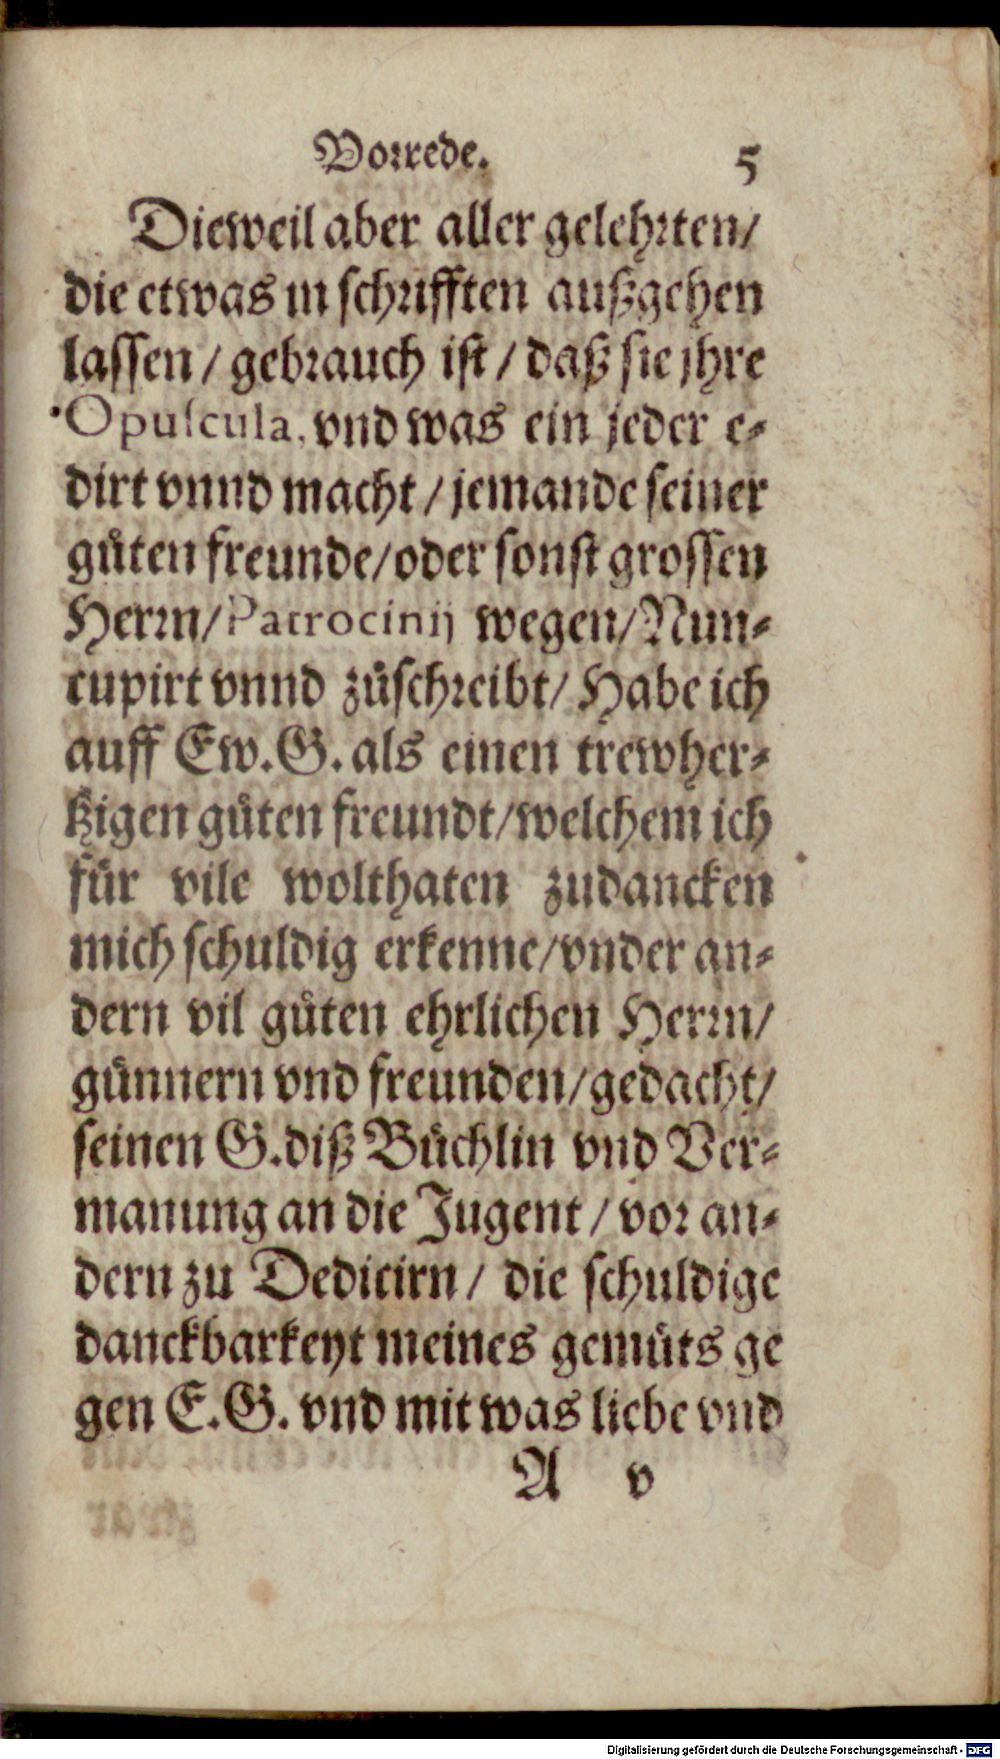 Vorrede. 5
Dieweil aber aller gelehrten/
die etwas in schrifften außgehen
lassen / gebrauch ist / daß sie jhre
Opuscula, vnd was ein jeder e-
dirt vnnd macht / jemande seiner
gůten freunde/oder sonst grossen
Herrn/Patrocinij wegen/Nun-
cupirt vnnd zůschreibt/ Habe ich
auff Ew.G. als einen trewher-
tzigen gůten freundt/welchem ich
für vile wolthaten zudancken
mich schuldig erkenne/vnder an-
dern vil gůten ehrlichen Herrn/
günnern vnd freunden/gedacht/
seinen G.diß Büchlin vnd Ver-
manung an die Jugent / vor an-
dern zu Dedicirn / die schuldige
danckbarkeyt meines gemüts ge
gen E.G. vnd mit was liebe vnd
A v
Digitalisierung gefördert durch die Deutsche Forschungsgemeinschaft - DFG